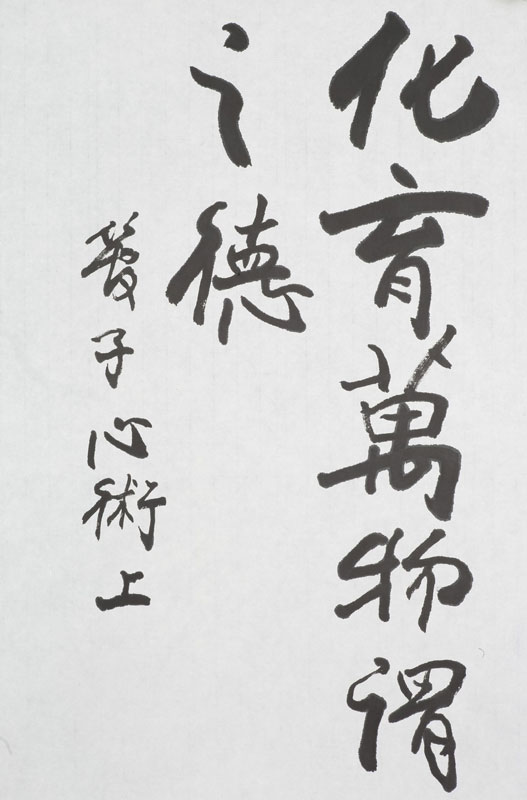 化育萬物謂
之德
管子心術上